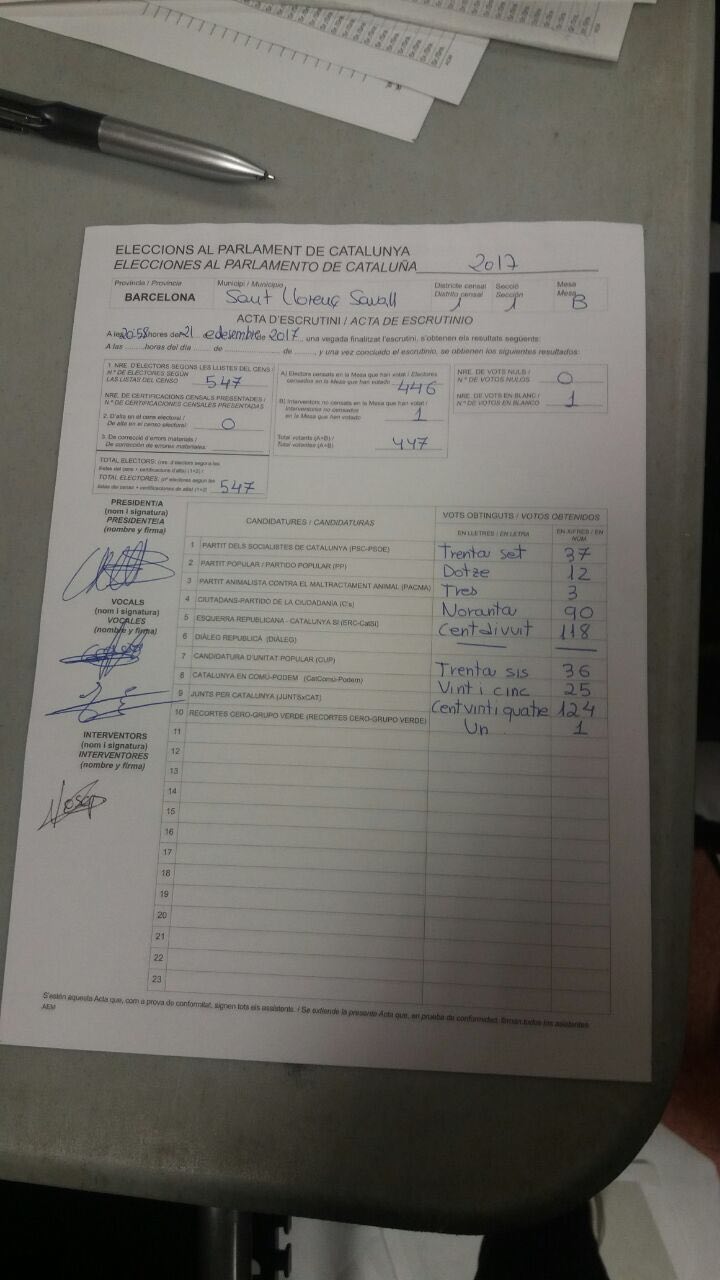 ELECCIONS AL PARLAMENT DE CATALUNYA
ELECCIONES AL PARLAMENTO DE CATALUÑA 2017
Província / Provincia
BARCELONA
Municipi / Municipio
Sant Llorenç Savall
Districte censal
Distrito censal
1
Secció
Sección
1
Mesa
Mesa
B
ACTA D'ESCRUTINI / ACTA DE ESCRUTINIO
A les 20:58 hores del 21 de desembre de 2017, una vegada finalitzat l'escrutini, s'obtenen els resultats següents:
A las ......... horas del día ....... de ................ de ......., y una vez concluido el escrutinio, se obtienen los siguientes resultados:
1. NRE. D'ELECTORS SEGONS LES LLISTES DEL CENS /
N.º DE ELECTORES SEGÚN
LAS LISTAS DEL CENSO 547
NRE. DE CERTIFICACIONS CENSALS PRESENTADES /
N.º DE CERTIFICACIONES CENSALES PRESENTADAS
2. D'alta en el cens electoral /
De alta en el censo electoral: 0
3. De correcció d'errors materials /
De corrección de errores materiales:
TOTAL ELECTORS: (nre. d'electors segons les
llistes del cens + certificacions d'alta) (1+2) /
TOTAL ELECTORES: (nº electores según las
listas del censo + certificaciones de alta) (1+2) 547
A) Electors censats en la Mesa que han votat / Electores
censados en la Mesa que han votado 446
B) Interventors no censats en la Mesa que han votat /
Interventores no censados
en la Mesa que han votado 1
Total votants (A+B) /
Total votantes (A+B) 447
NRE. DE VOTS NULS /
N.º DE VOTOS NULOS 0
NRE. DE VOTS EN BLANC /
N.º DE VOTOS EN BLANCO 1
PRESIDENT/A
(nom i signatura)
PRESIDENTE/A
(nombre y firma)
VOCALS
(nom i signatura)
VOCALES
(nombre y firma)
INTERVENTORS
(nom i signatura)
INTERVENTORES
(nombre y firma)
CANDIDATURES / CANDIDATURAS
VOTS OBTINGUTS / VOTOS OBTENIDOS
EN LLETRES / EN LETRA
EN XIFRES / EN NÚM
1 PARTIT DELS SOCIALISTES DE CATALUNYA (PSC-PSOE) Trenta set 37
2 PARTIT POPULAR / PARTIDO POPULAR (PP) Dotze 12
3 PARTIT ANIMALISTA CONTRA EL MALTRACTAMENT ANIMAL (PACMA) Tres 3
4 CIUTADANS-PARTIDO DE LA CIUDADANÍA (C's) Noranta 90
5 ESQUERRA REPUBLICANA - CATALUNYA SÍ (ERC-CatSí) Cent divuit 118
6 DIÀLEG REPUBLICÀ (DIÀLEG) — —
7 CANDIDATURA D'UNITAT POPULAR (CUP) Trenta sis 36
8 CATALUNYA EN COMÚ-PODEM (CatComú-Podem) Vint i cinc 25
9 JUNTS PER CATALUNYA (JUNTSxCAT) Cent vint i quatre 124
10 RECORTES CERO-GRUPO VERDE (RECORTES CERO-GRUPO VERDE) Un 1
11
12
13
14
15
16
17
18
19
20
21
22
23
S'estén aquesta Acta que, com a prova de conformitat, signen tots els assistents. / Se extiende la presente Acta que, en prueba de conformidad, firman todos los asistentes
AEM